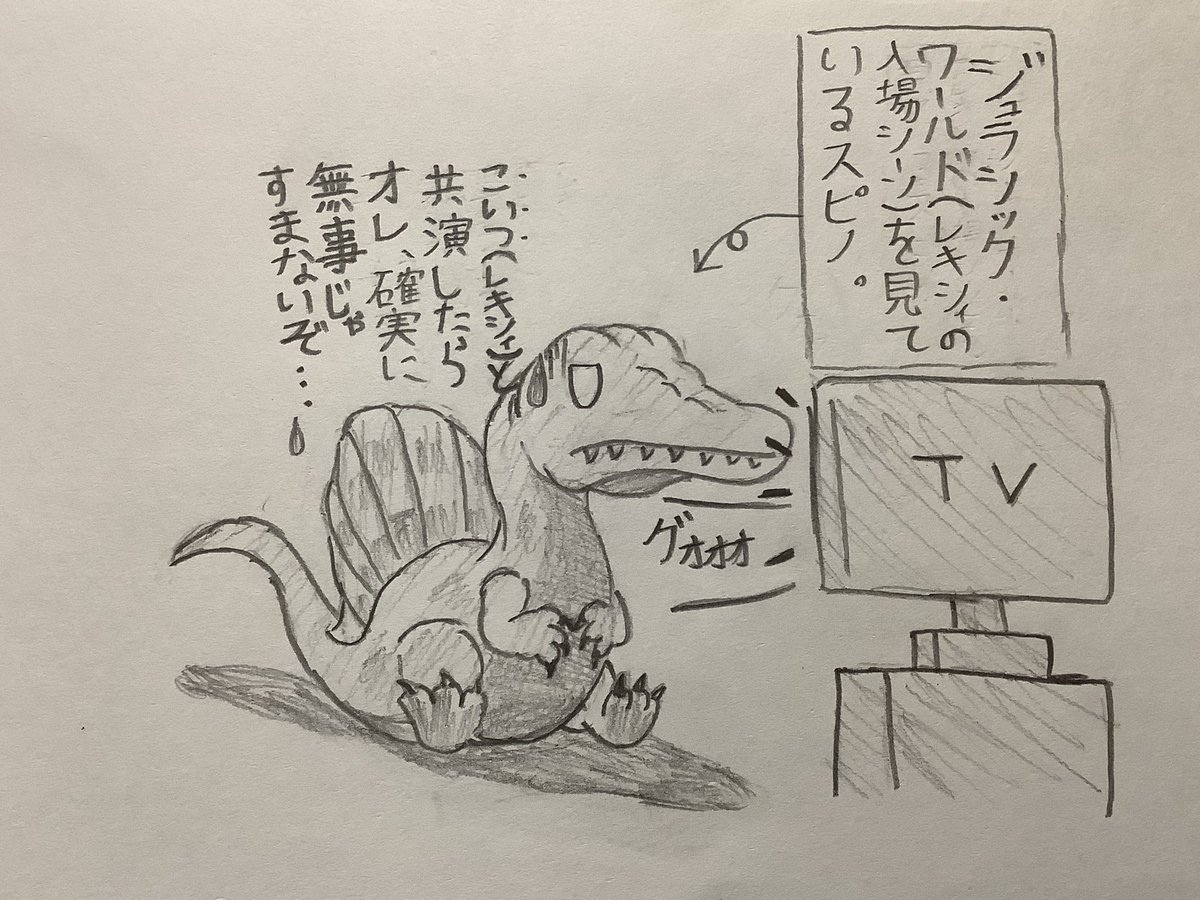 ジュラシック・
ワールド(レキシィの
入場シーン)を見て
いるスピノ。
こいつ(レキシィ)と
共演したら
オレ、確実に
無事じゃ
すまないぞ・・・
TV
グオオオ